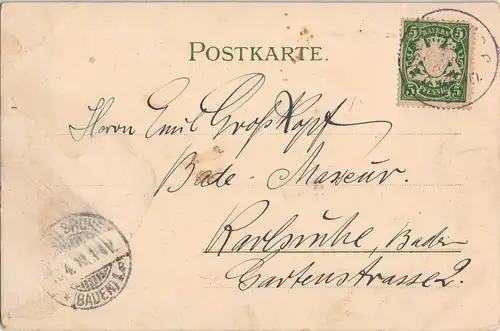 POSTKARTE.
5 BAYERN 5
5 PFENNIG 5
Herrn Emil Großkopf
Bade-Masseur.
Karlsruhe, Baden
Gartenstrasse 2.
(BADEN)